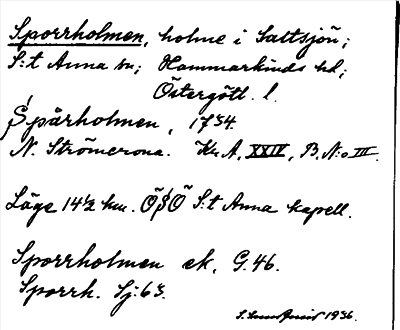 Sporrholmen, holme i Saltsjön;
S:t Anna sn; Hammarkinds hd;
Östergötl. l.
Spårholmen, 1734.
N. Strömerona. Kr. A. XXIV, B. N:o III.
Läge 14½ km. ÖSÖ S:t Anna kapell.
Sporrholmen ek. G. 46.
Sporrh. Sj: 63.
1936.